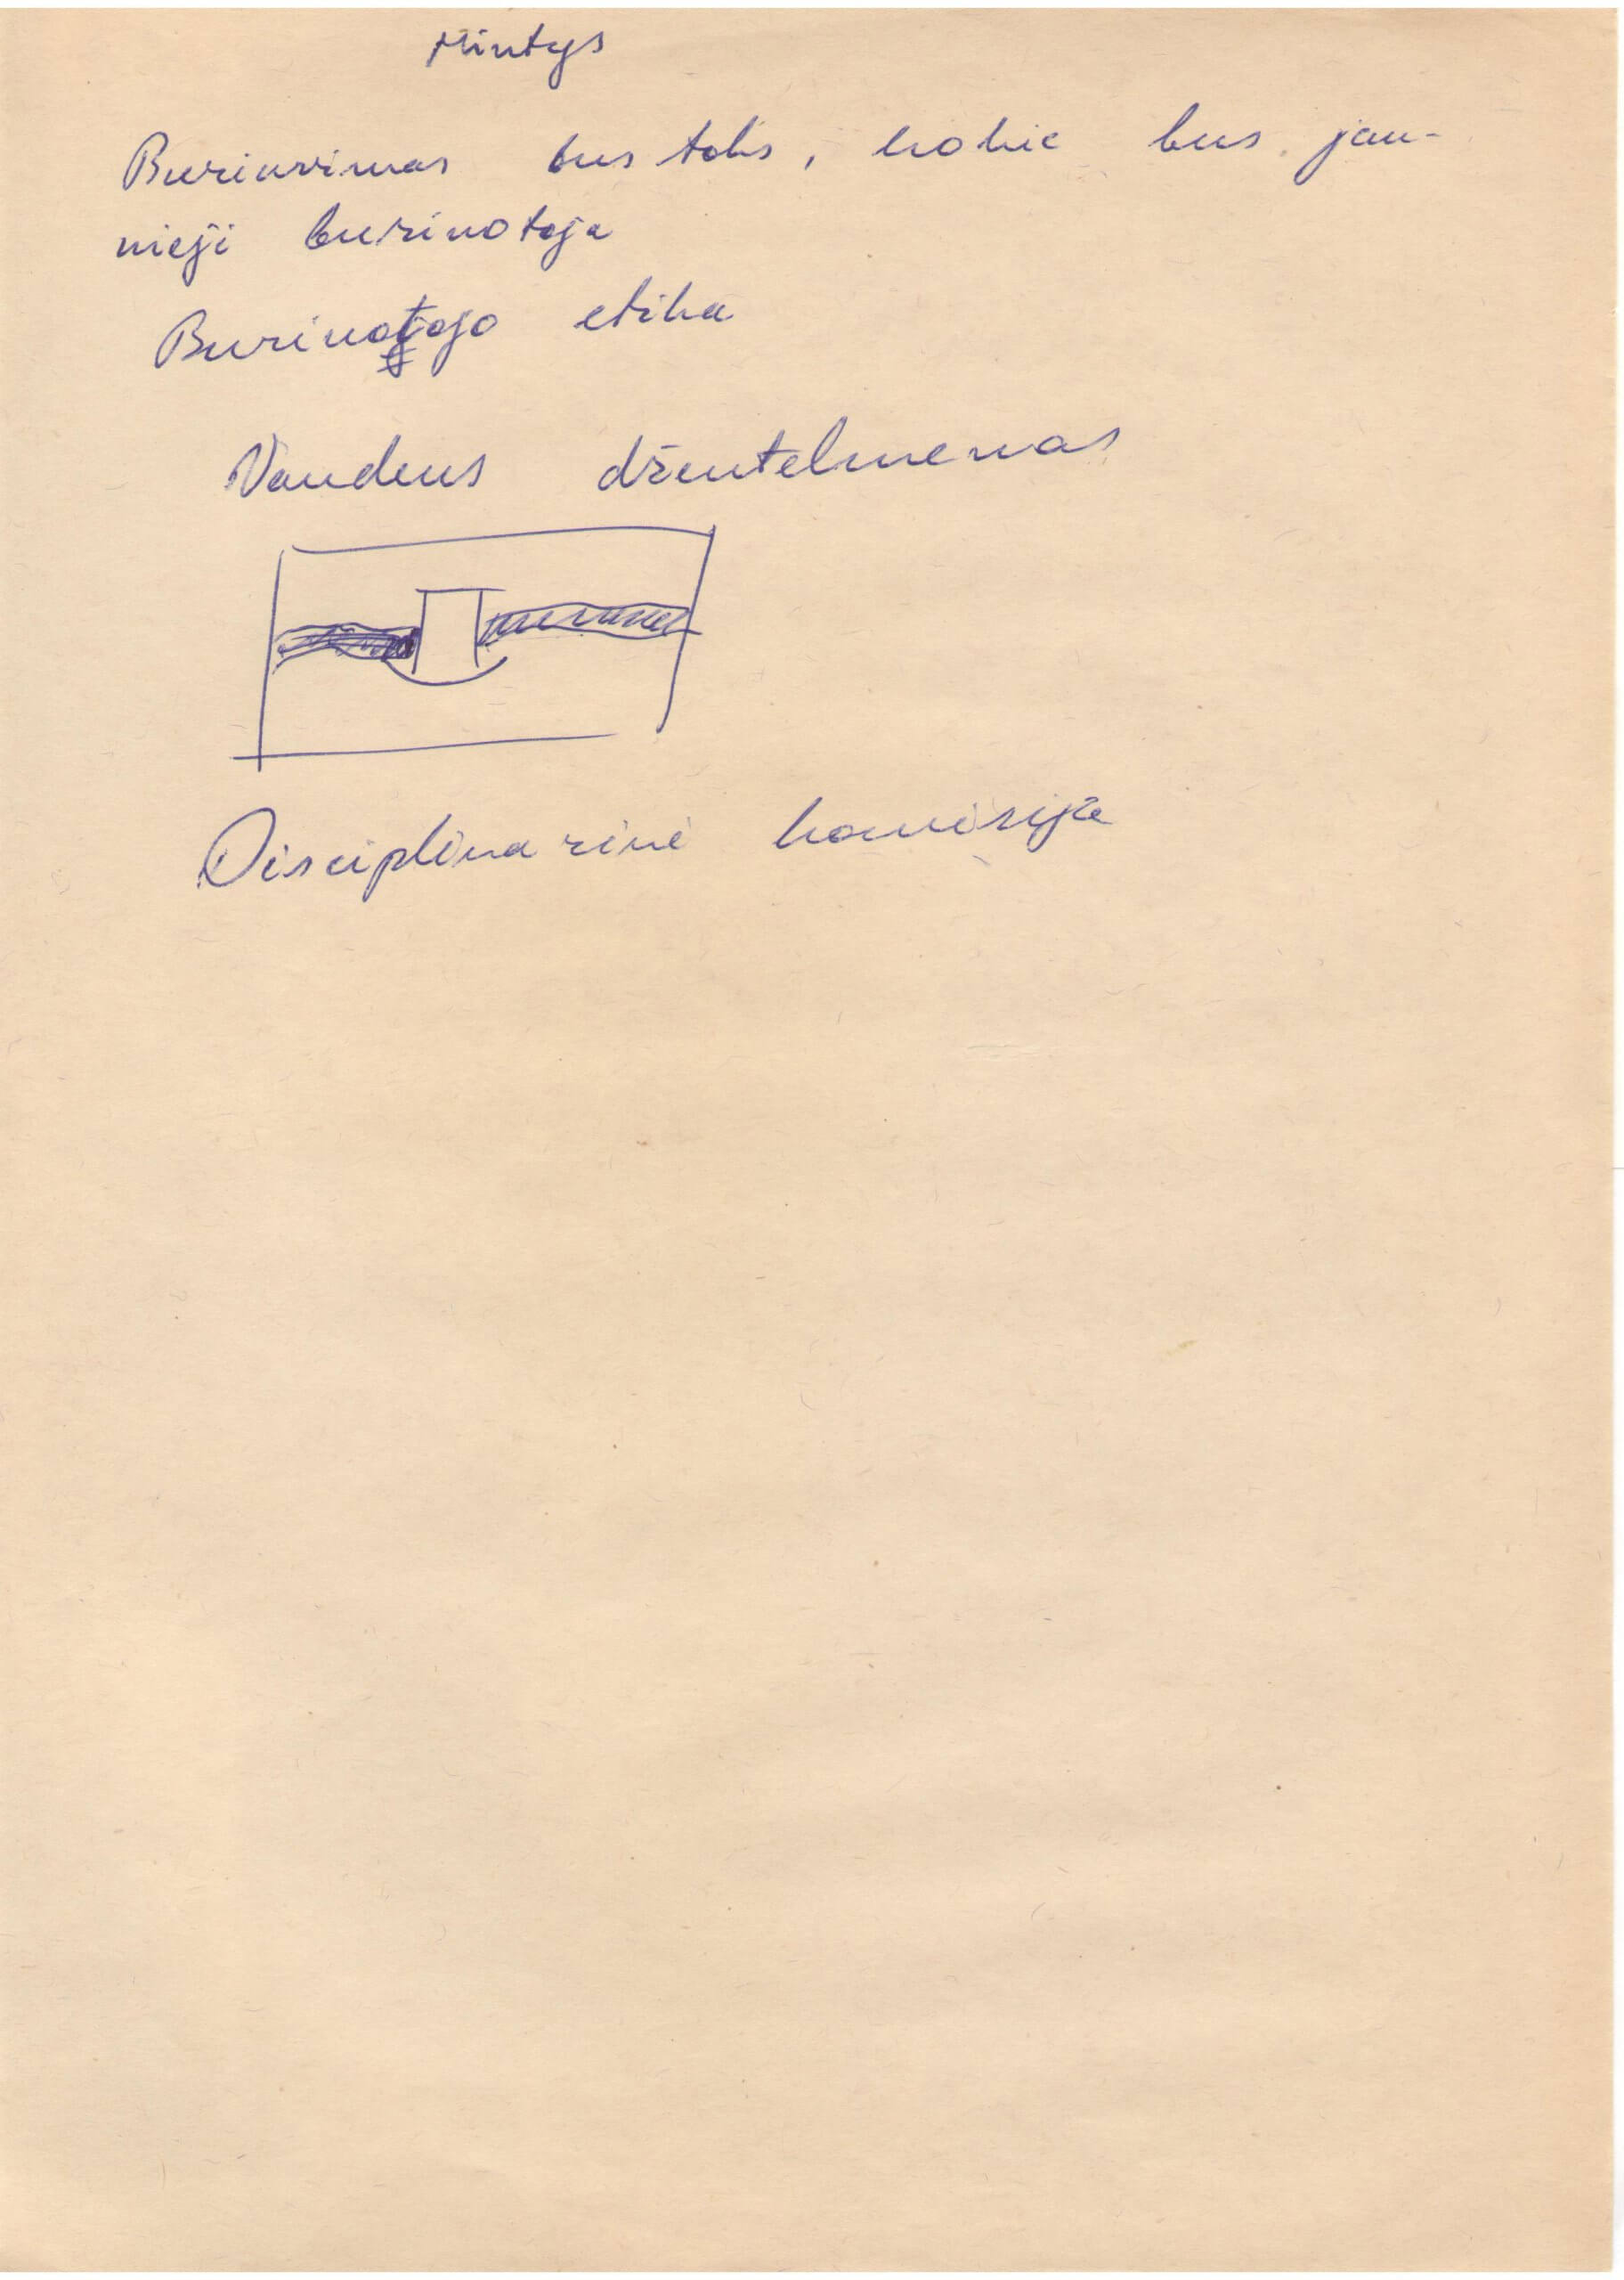 Mintys
Buriavimas bus toks, kokie bus jau-
nieji buriuotoja
Buriuotojo etika
Vandens džentelmenas
Disciplinarinė komisija